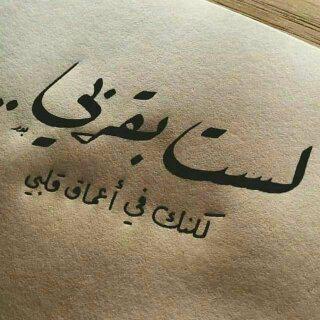 لست بقربي ..
لكنك في أعماق قلبي